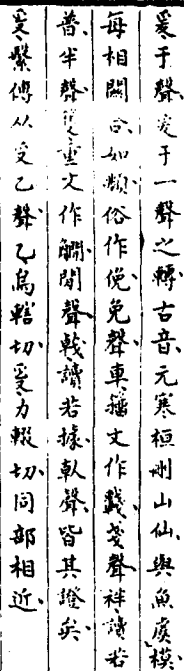 爰于聲爰于一聲之轉古音元寒桓刪山仙與魚虞模
每相關合如頫俗作俛免聲車籀文作𨏖戔聲袢讀若
普半聲重文作閒聲戟讀若據倝聲皆其證矣
繫傳从受乙聲乙烏轄切受力輟切同部相近